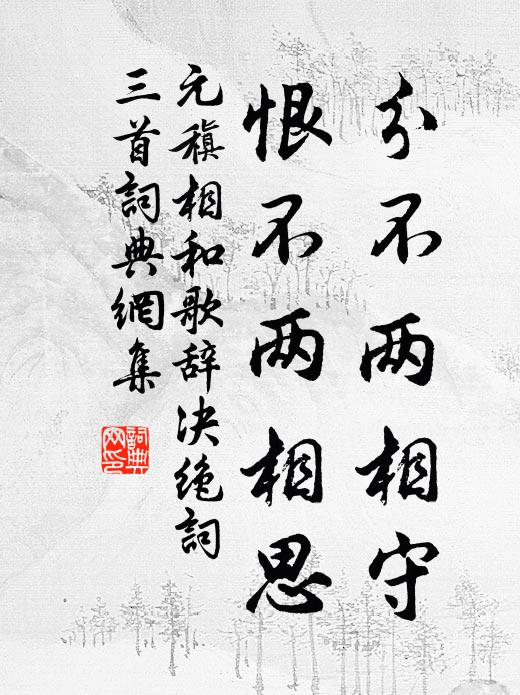 分不两相守
恨不两相思
元稹相和歌辞决绝詞
三首詞典網集
詞典
网印